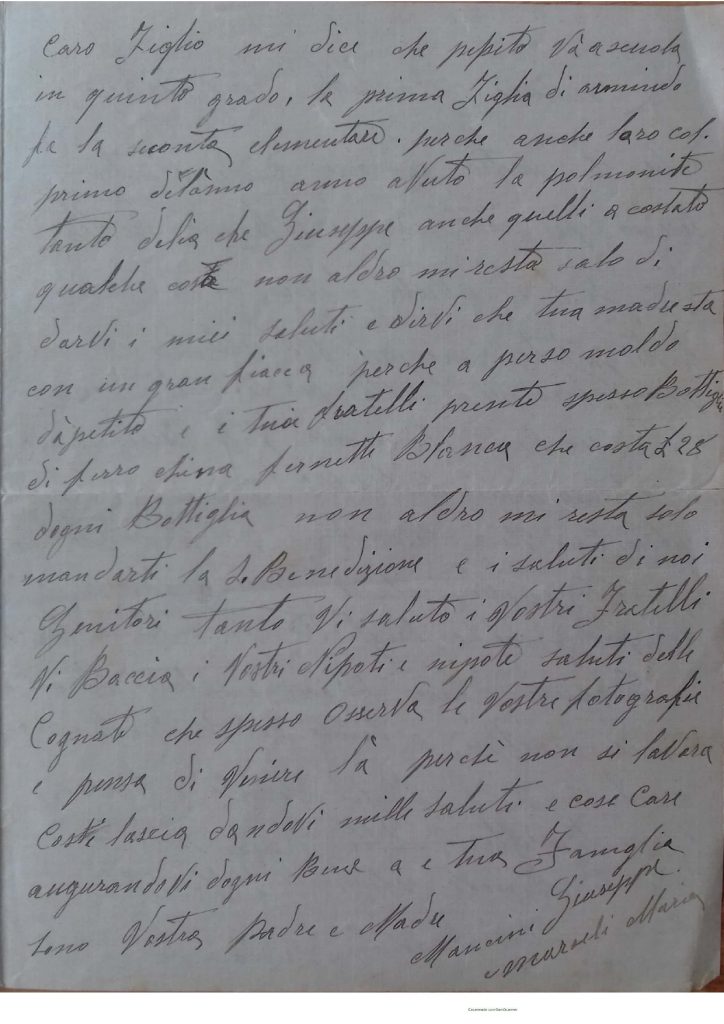 Caro Figlio mi dice che pepito và a scuola
in quinto grado, la prima Figlia di armindo
fa la seconta elementare. perche anche loro col.
primo dèlànno anno aVuto la polmonite
tanto delia che Giuseppe anche quelli a costato
qualche cosa non aldro mi resta salo di
darvi i miei saluti e dirvi che tua madre sta
con un gran fiacca perche a perso moldo
dàpetito e i tuoi fratelli prente spesso Bottiglia
di ferro china fernette Blanca che costa £ 28
dogni Bottiglia non aldro mi resta solo
mandarti la S. Benedizione e i saluti di noi
Genitori tanto Vi saluto i Vostri Fratelli
Vi Baccia i Vostri Nipoti e nipote saluti delle
Cognate che spesso Osserva le Vostre fotografie
e pensa di Venire là perchè non si laVora
Costi lascia dandoVi mille saluti e cose Care
augurandoVi dogni Bene a e tua Famiglia
sono Vostra Padre e Madre
Mancini Giuseppe.
Maria
Scannerizzato con CamScanner